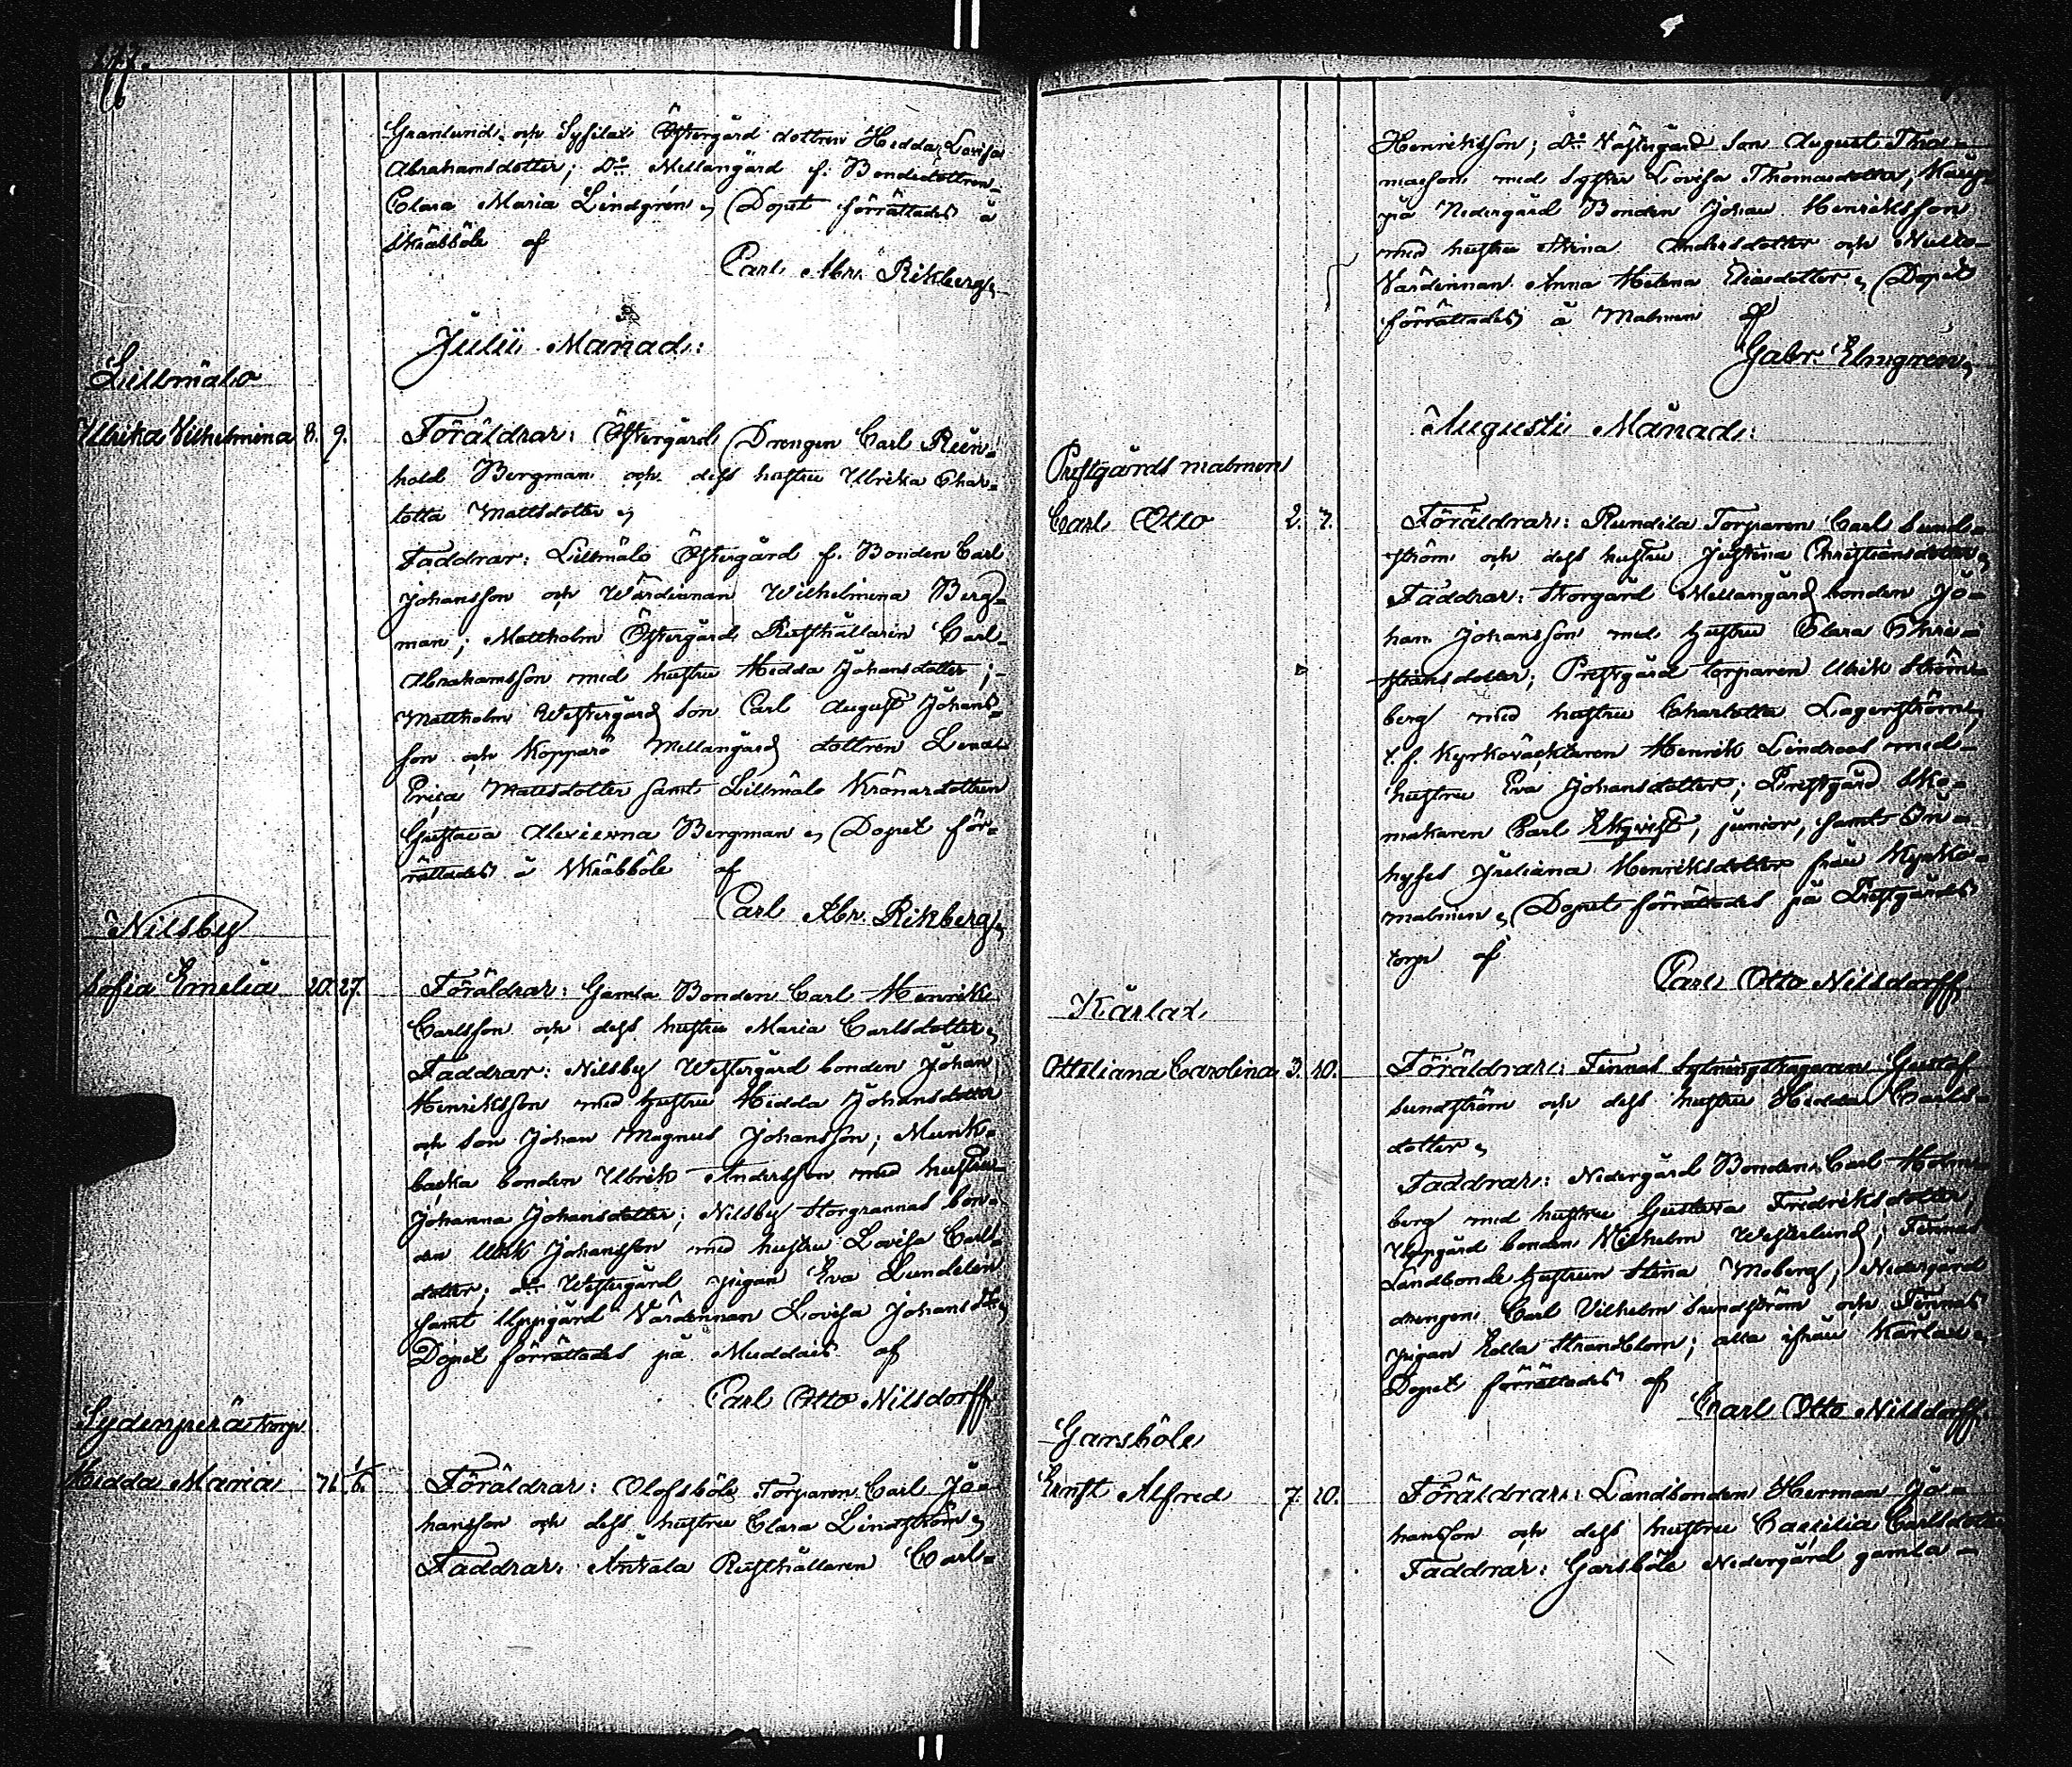 Granlund och Sysilax Östergård dottren Hedda Lovisa
Abrahamsdotter; Do Mellangård f. Bondedottren
Clara Maria Lindgrén, Dopet förrättades å
Skräbböle af
Carl Abr. Rikberg,
Julii Månad:
Lillmälo
Ulrika Vilhelmina 8. 9. Föräldrar: Östergård Drengen Carl Rein-
hold Bergman och dess hustru Ulrika Char-
lotta Mattsdotter,
Faddrar: Lillmälo Östergård f. Bonden Carl
Johansson och Wärdinnan Wilhelmina Berg-
man; Mattholm Östergård Rusthållaren Carl
Abrahamsson med hustru Hedda Johansdotter;
Mattholm Westergård Son Carl August Johans-
son och Kopparö Mellangård dottren
Erica Mattsdotter samt Lillmälo dottren
Gustava Bergman, Dopet för-
rättades å Skräbböle af
Carl Abr. Rikberg,
Nilsby
Sofia Emelia 20. 27. Föräldrar: Gamla Bonden Carl Henrik
Carlsson och dess hustru Maria Carlsdotter,
Faddrar: Nilsby Westergård bonden Johan
Henriksson med hustru Hedda Johansdotter
och Son Johan Magnus Johansson; Munk-
backa bonden Ulrik Andersson med hustru
Johanna Johansdotter; Nilsby Storgrannas bon-
den Ulrik Johansson med hustru Lovisa Carls-
dotter; do Westergård pigan Eva Lundelin
samt Uppgård Värdinnan Lovisa Johansdtr,
Dopet förrättades på Muddais af
Carl Otto Nilsdorff
Sydenperä torp
Hedda Maria Föräldrar: Olofsböle Torparen Carl Jo-
hansson och dess hustru Clara Lindström,
Faddrar: Rusthållaren Carl
Henriksson; Do Västergård Son August Tho-
masson med syster Lovisa Thomasdotter,
på Nedergård Bonden Johan Henriksson
med hustru Stina Andersdotter och
Värdinnan Anna Helena Eliasdotter, Dopet
förrättades å Malmen af
Gabr. Elmgren,
Augusti Månad:
Prestgårds malmen
Carl Otto 2. 7. Föräldrar: Rundila Torparen Carl Sund-
ström och dess hustru Justina Christiansdotter,
Faddrar: Storgård Mellangård bonden Jo-
han Johansson med hustru Clara Chri-
stiansdotter; Prestgård torparen Ulrik Ström-
berg med hustru Charlotta Lagerström,
t. f. Kyrkoväcktaren Henrik Lindroos med
hustru Eva Johansdotter; Prestgård Sko-
makaren Carl Ekqvist, junior, samt In-
hyses Juliana Henriksdotter från Kyrko-
malmen, Dopet förrättades på Prestgårds
torp af
Carl Otto Nilsdorff
Kärlax
Otteliana Carolina 3. 10. Föräldrar: Finnas Sytningstagaren Gustaf
Sundström och dess hustru Hedda Carls-
dotter,
Faddrar: Nedergård Bonden Carl Holm-
berg med hustru Gustava Fredriksdotter,
Uppgård bonden Wilhelm Westerlund; Finnas
Landbonde hustrun Stina Moberg; Nedergård
drengen Carl Vilhelm Sundström och Finnas
pigan Strandblom; alla ifrån Kärlax,
Dopet förrättades af
Carl Otto Nilsdorff
Garsböle
Ernst Alfred 7. 10. Föräldrar: Landbonden Herman Jo-
hansson och dess hustru Caecilia Carlsdotter
Faddrar: Garsböle Nedergård gamla